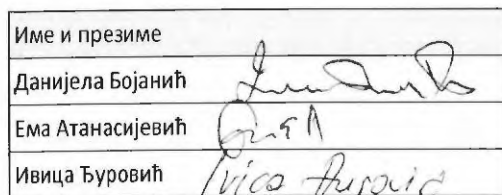 Име и презиме
Данијела Бојанић
Ема Атанасијевић
Ивица Ђуровић Ivica